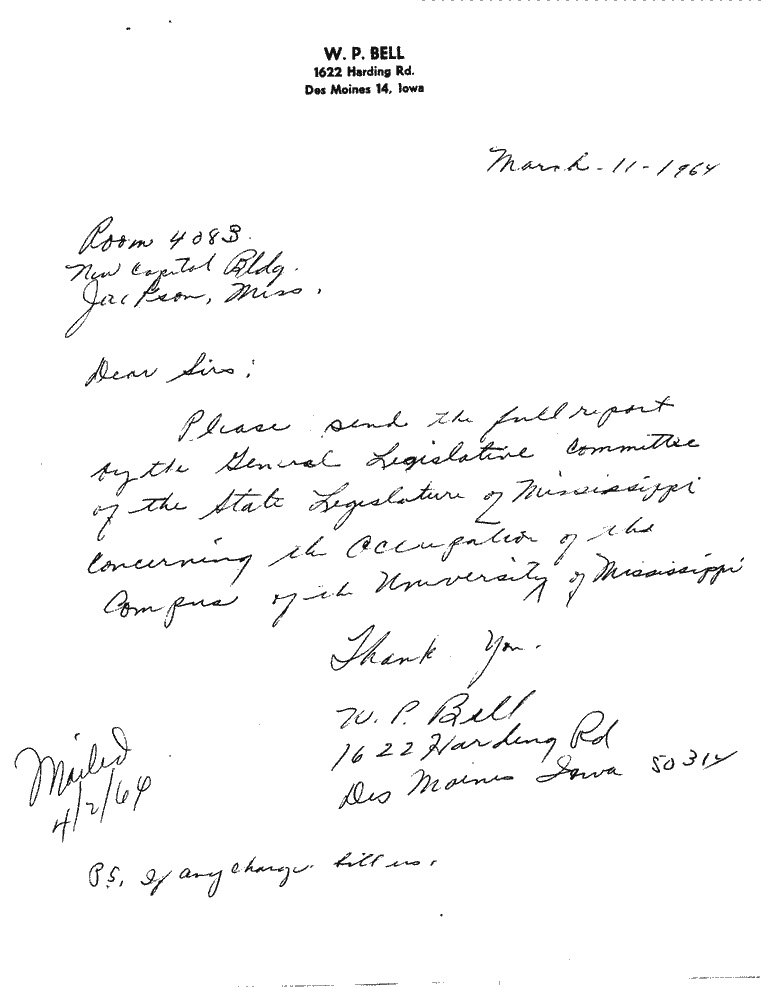 W. P. BELL
1622 Harding Rd.
Des Moines 14, Iowa
March-11-1964
Room 4083.
New Capitol Bldg.
Jackson, Miss.
Dear Sirs:
Please send the full report
by the General Legislative committee
of the State Legislature of Mississippi
concerning the Occupation of the
Campus of the University of Mississippi
Thank You.
W. P. Bell
1622 Harding Rd
Des Moines Iowa 50314
Mailed
4/2/64
P.S. If any charge bill us.